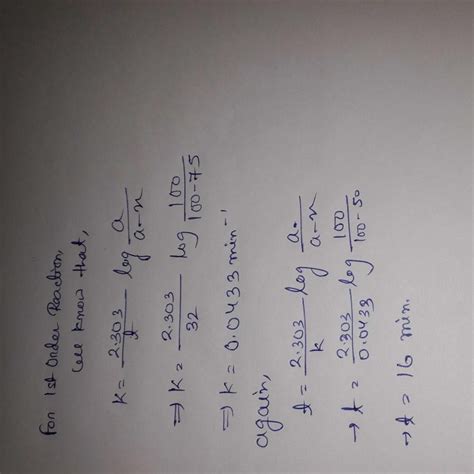 For 1st Order Reaction,
we know that,
K = 2.303/t log a/a-x
⇒ K = 2.303/32 log 100/100-75
⇒ K = 0.0433 min⁻¹
again,
t = 2.303/k log a/a-x
→ t = 2.303/0.0433 log 100/100-50
→ t = 16 min.